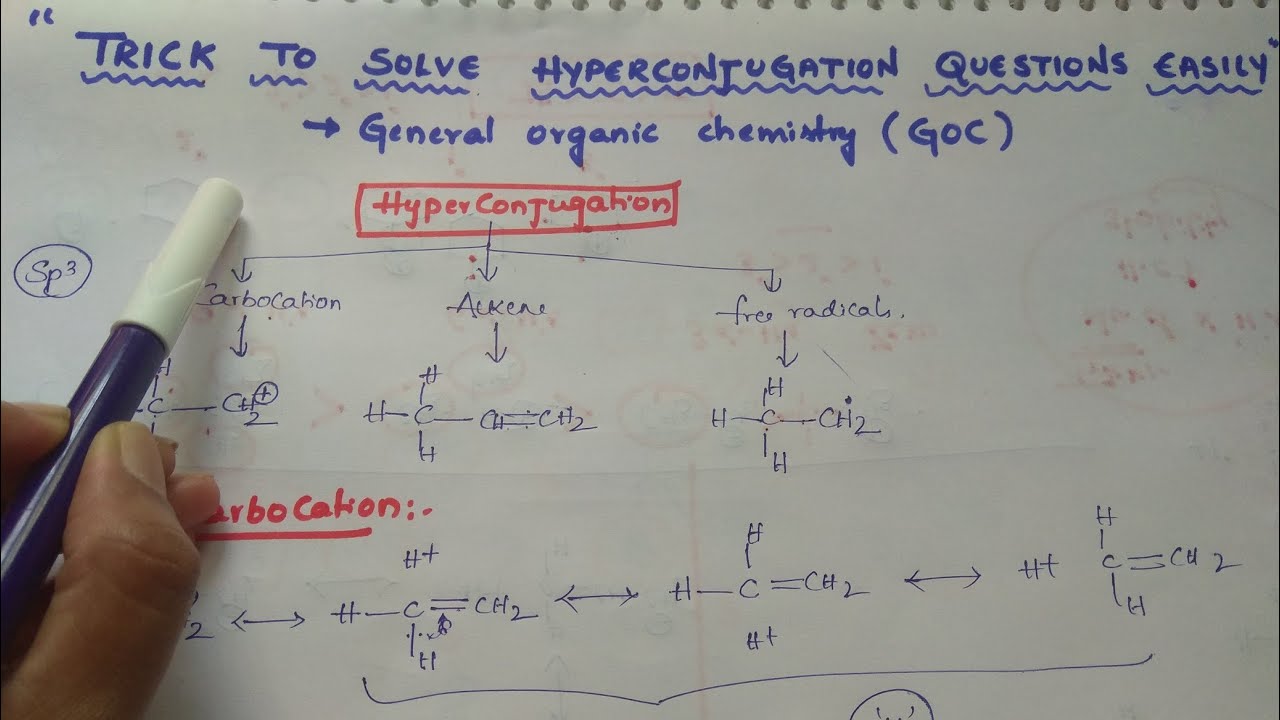 "TRICK TO SOLVE HYPERCONJUGATION QUESTIONS EASILY"
→ General organic chemistry (GOC)
HyperConjugation
Sp³
Carbocation Alkene free radicals.
H H H
C—CH2⊕ H—C—CH=CH2 H—C—CĊH2
H H
arbocation:-
H+ H H
2 ↔ H—C=CH2 ↔ H—C=CH2 ↔ H+ C=CH2
H H+ H